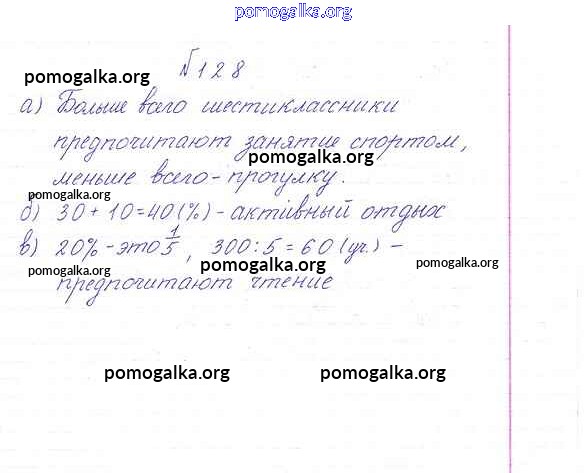 pomogalka.org
№128
pomogalka.org
а) Больше всего шестиклассники
предпочитают занятие спортом,
pomogalka.org
меньше всего - прогулку.
pomogalka.org
б) 30 + 10 = 40 (%) - активный отдых
в) 20% - это 1/5, 300 : 5 = 60 (уч.) -
pomogalka.org pomogalka.org pomogalka.org
предпочитают чтение
pomogalka.org pomogalka.org